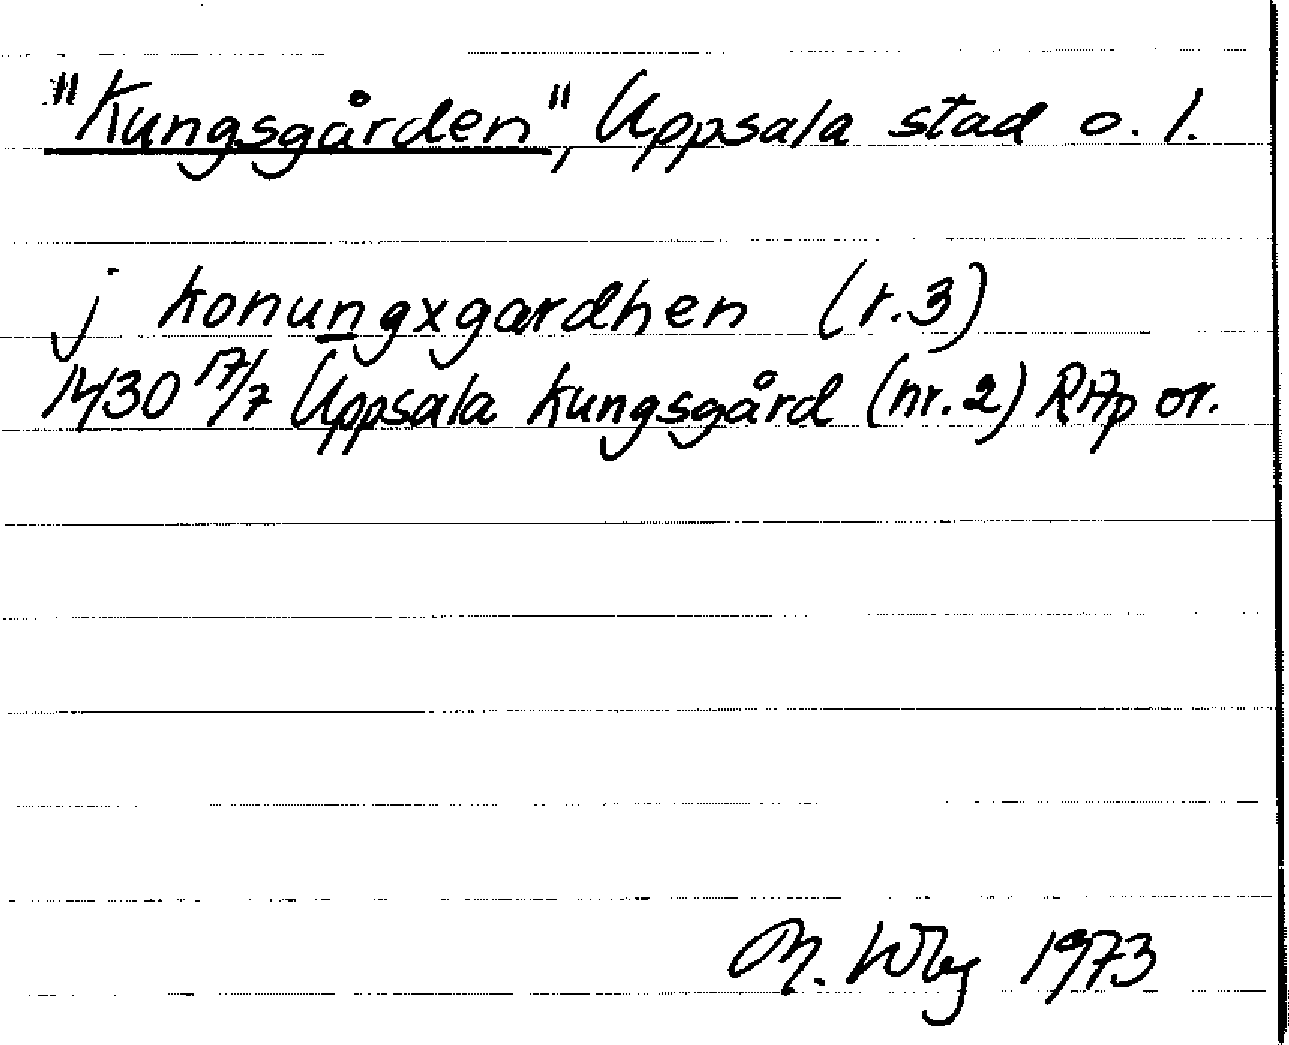 "Kungsgården", Uppsala stad o. l.
j konungxgardhen (r.3)
1430 17/7 Uppsala kungsgård (nr. 2) RAp or.
M. Wbg 1973